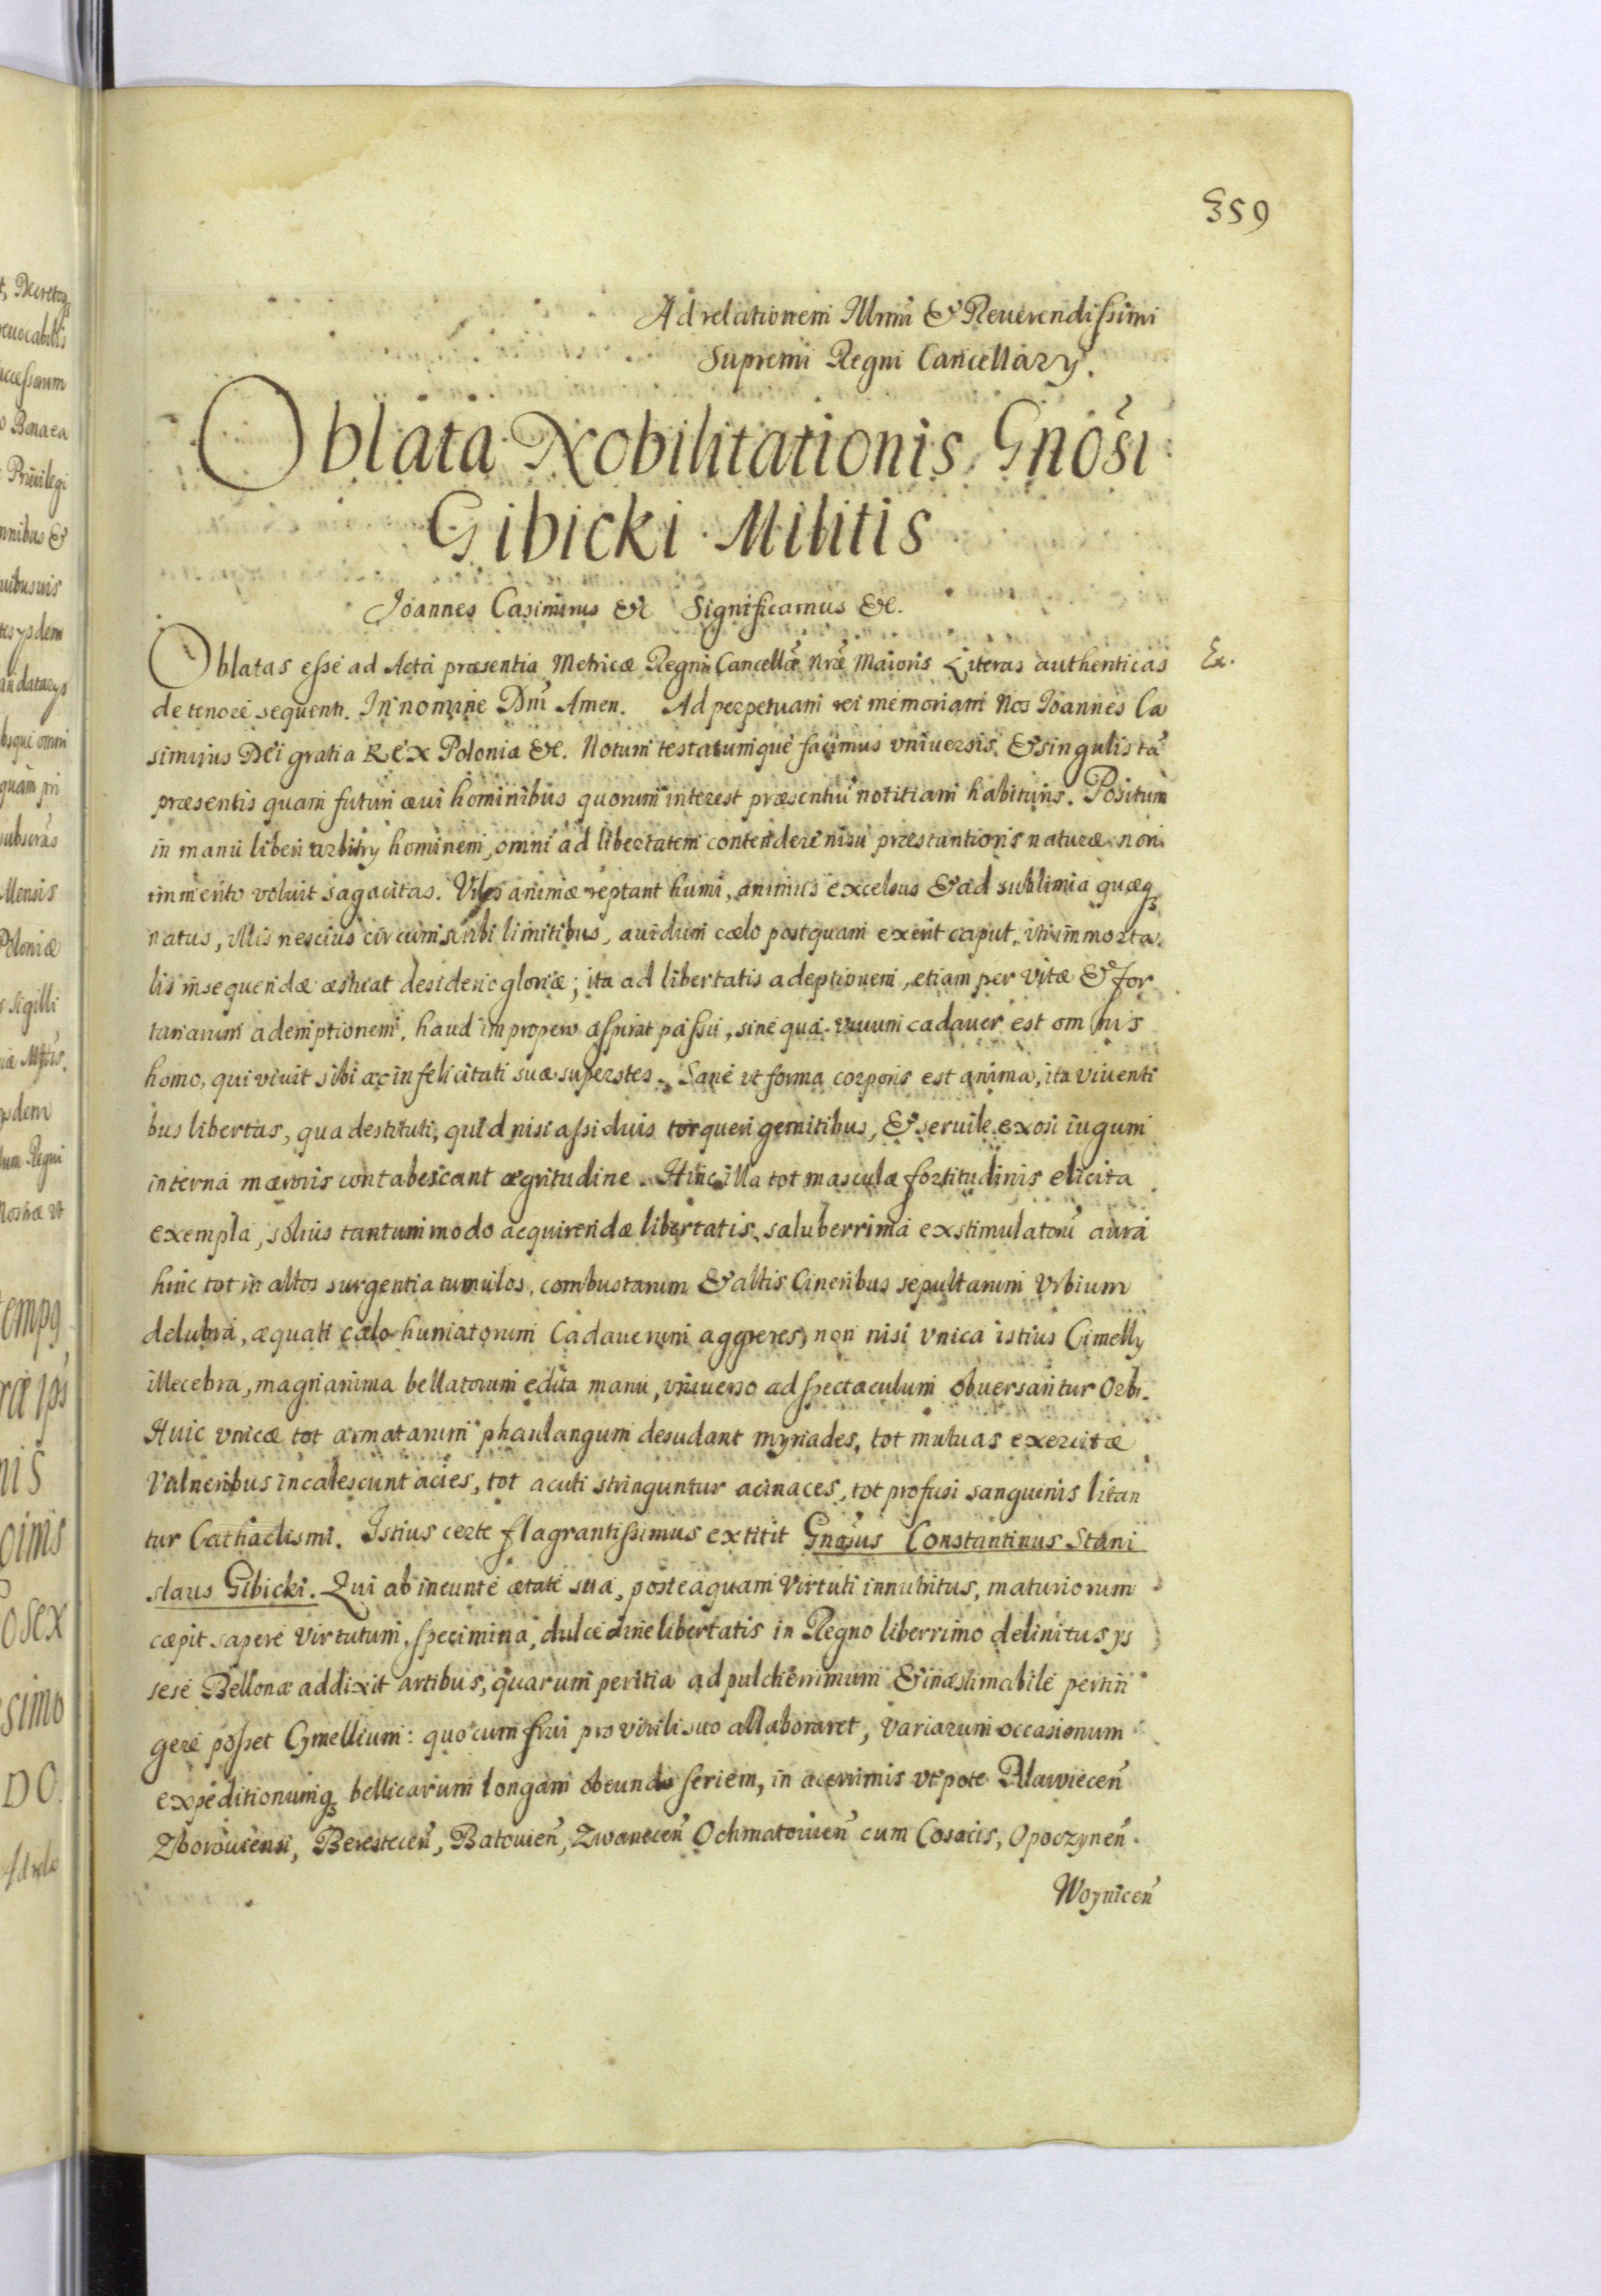 359
Ad relationem Illmi & Reuerendissimi
Supremi Regni Cancellarÿ.
Oblata Nobilitationis Gnosi
Gibicki Militis
Joannes Casimirus &c Significamus &c.
Oblatas esse ad Acta præsentia Metricæ Regni Cancellæ nræ Maioris Literas authenticas
Ex.
de tenore sequenti. In nomine Dni Amen. Ad perpetuam rei memoriam Nos Joannes Ca
simirus Dei gratia Rex Poloniæ &c. Notum testatumque facimus vniuersis & singulis tã
præsentis quam futuri æui hominibus quorum interest præsentiũ notitiam habituris. Positum
in manu liberi arbitrÿ hominem, omni ad libertatem contendere nisu præstantioris naturæ non
immerito voluit sagacitas. Viles animæ reptant humi, animus excelsus & ad sublimia quæq
natus, vllis nescius circumscribi limitibus, auidum cælo postquam exerit caput, vti immorta
lis insequendæ æstuat desiderio gloriæ; ita ad libertatis adeptionem, etiam per vitæ & for
tunarum ademptionem, haud impropero aspirat passu, sine qua viuum cadauer est omnis
homo, qui viuit sibi ac infelicitati suæ superstes. Sane vt forma corporis est anima, ita viuenti
bus libertas, qua destituti, quid nisi assiduis torqueri gemitibus, & seruile exosi iugum
interna mæroris contabescant ægritudine. Hinc illa tot masculæ fortitudinis elicita
exempla, solius tantummodo acquirendæ libertatis, saluberrima exstimulatorũ aura
hinc tot in altos surgentia tumulos, combustarum & altis Cineribus sepultarum Vrbium
delubra, æquati cælo humatorum Cadauerum aggeres, non nisi vnica istius Cimelÿ
illecebra, magnanima bellatorum edita manu, vniuerso ad spectaculum obuersantur Orbi.
Huic vnicæ tot armatarum phaulangum desudant myriades, tot mutuas exercitæ
Vulneribus incalescunt acies, tot acuti stringuntur acinaces, tot profusi sanguinis litan
tur Cathaclismi. Istius certe flagrantissimus extitit Gnosus Constantinus Stani
slaus Gibicki. Qui ab ineunte ætate sua, posteaquam Virtuti innutritus, maturiorum
cæpit sapere virtutum, specimina, dulcedine libertatis in Regno liberrimo delinitus ÿs
sese Bellonæ addixit artibus, quarum peritia ad pulcherrimum & inæstimabile pertin
gere posset Cymellium: quo cum frui pro virili suo allaboraret, variarum occasionum
expeditionumq bellicarum longam obeundo seriem, in acerrimis vtpote Pilawiecen
Zborowiensi, Berestecen, Batowien, Zwanecen Ochmatowien cum Cosacis, Opoczynen
Woynicen